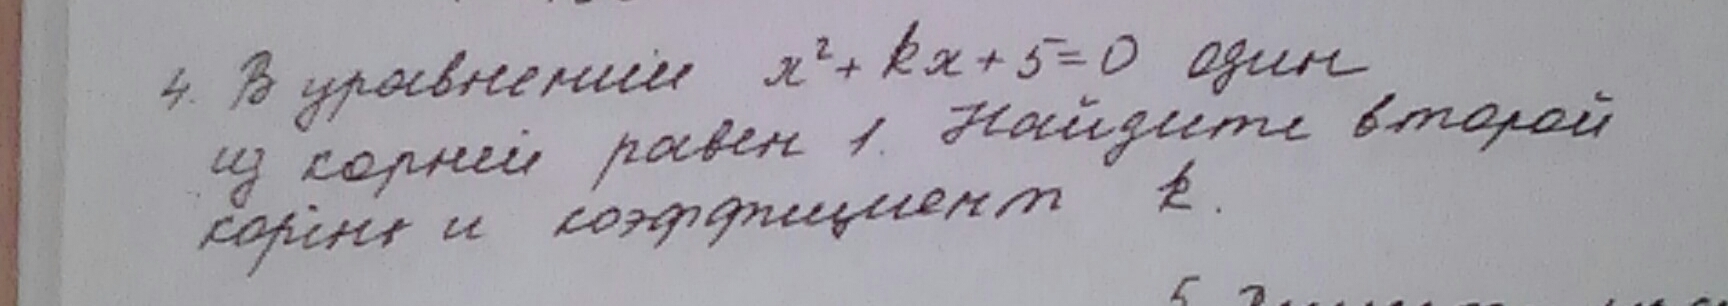 4. В уравнении x² + kx + 5 = 0 один
из корней равен 1. Найдите второй
корень и коэффициент k.
5.